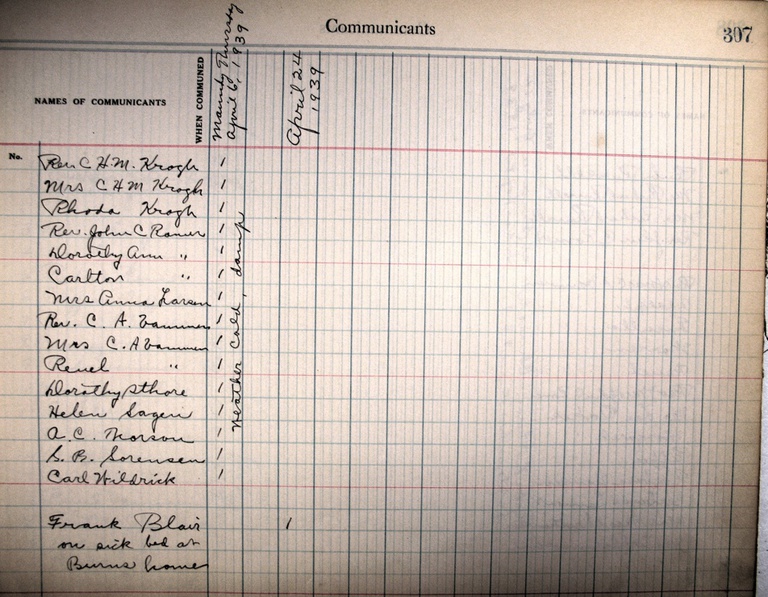 Communicants
307
NAMES OF COMMUNICANTS
WHEN COMMUNED
Maundy Thursday
April 6, 1939
April 24
1939
No.
Rev C H. M. Krogh 1
Mrs C H M Krogh 1
Rhoda Krogh 1
Rev. John C Ramer 1
Dorothy Ann " 1
Carlton " 1
Mrs Anna Larsen 1
Rev. C. A. 1
Mrs C. A 1
Reuel " 1
Dorothy 1
Helen 1
A. C. 1
S. B. Sorensen 1
Carl Wildrick 1
Weather Cold, damp
Frank Blair 1
on sick bed at
Burns home